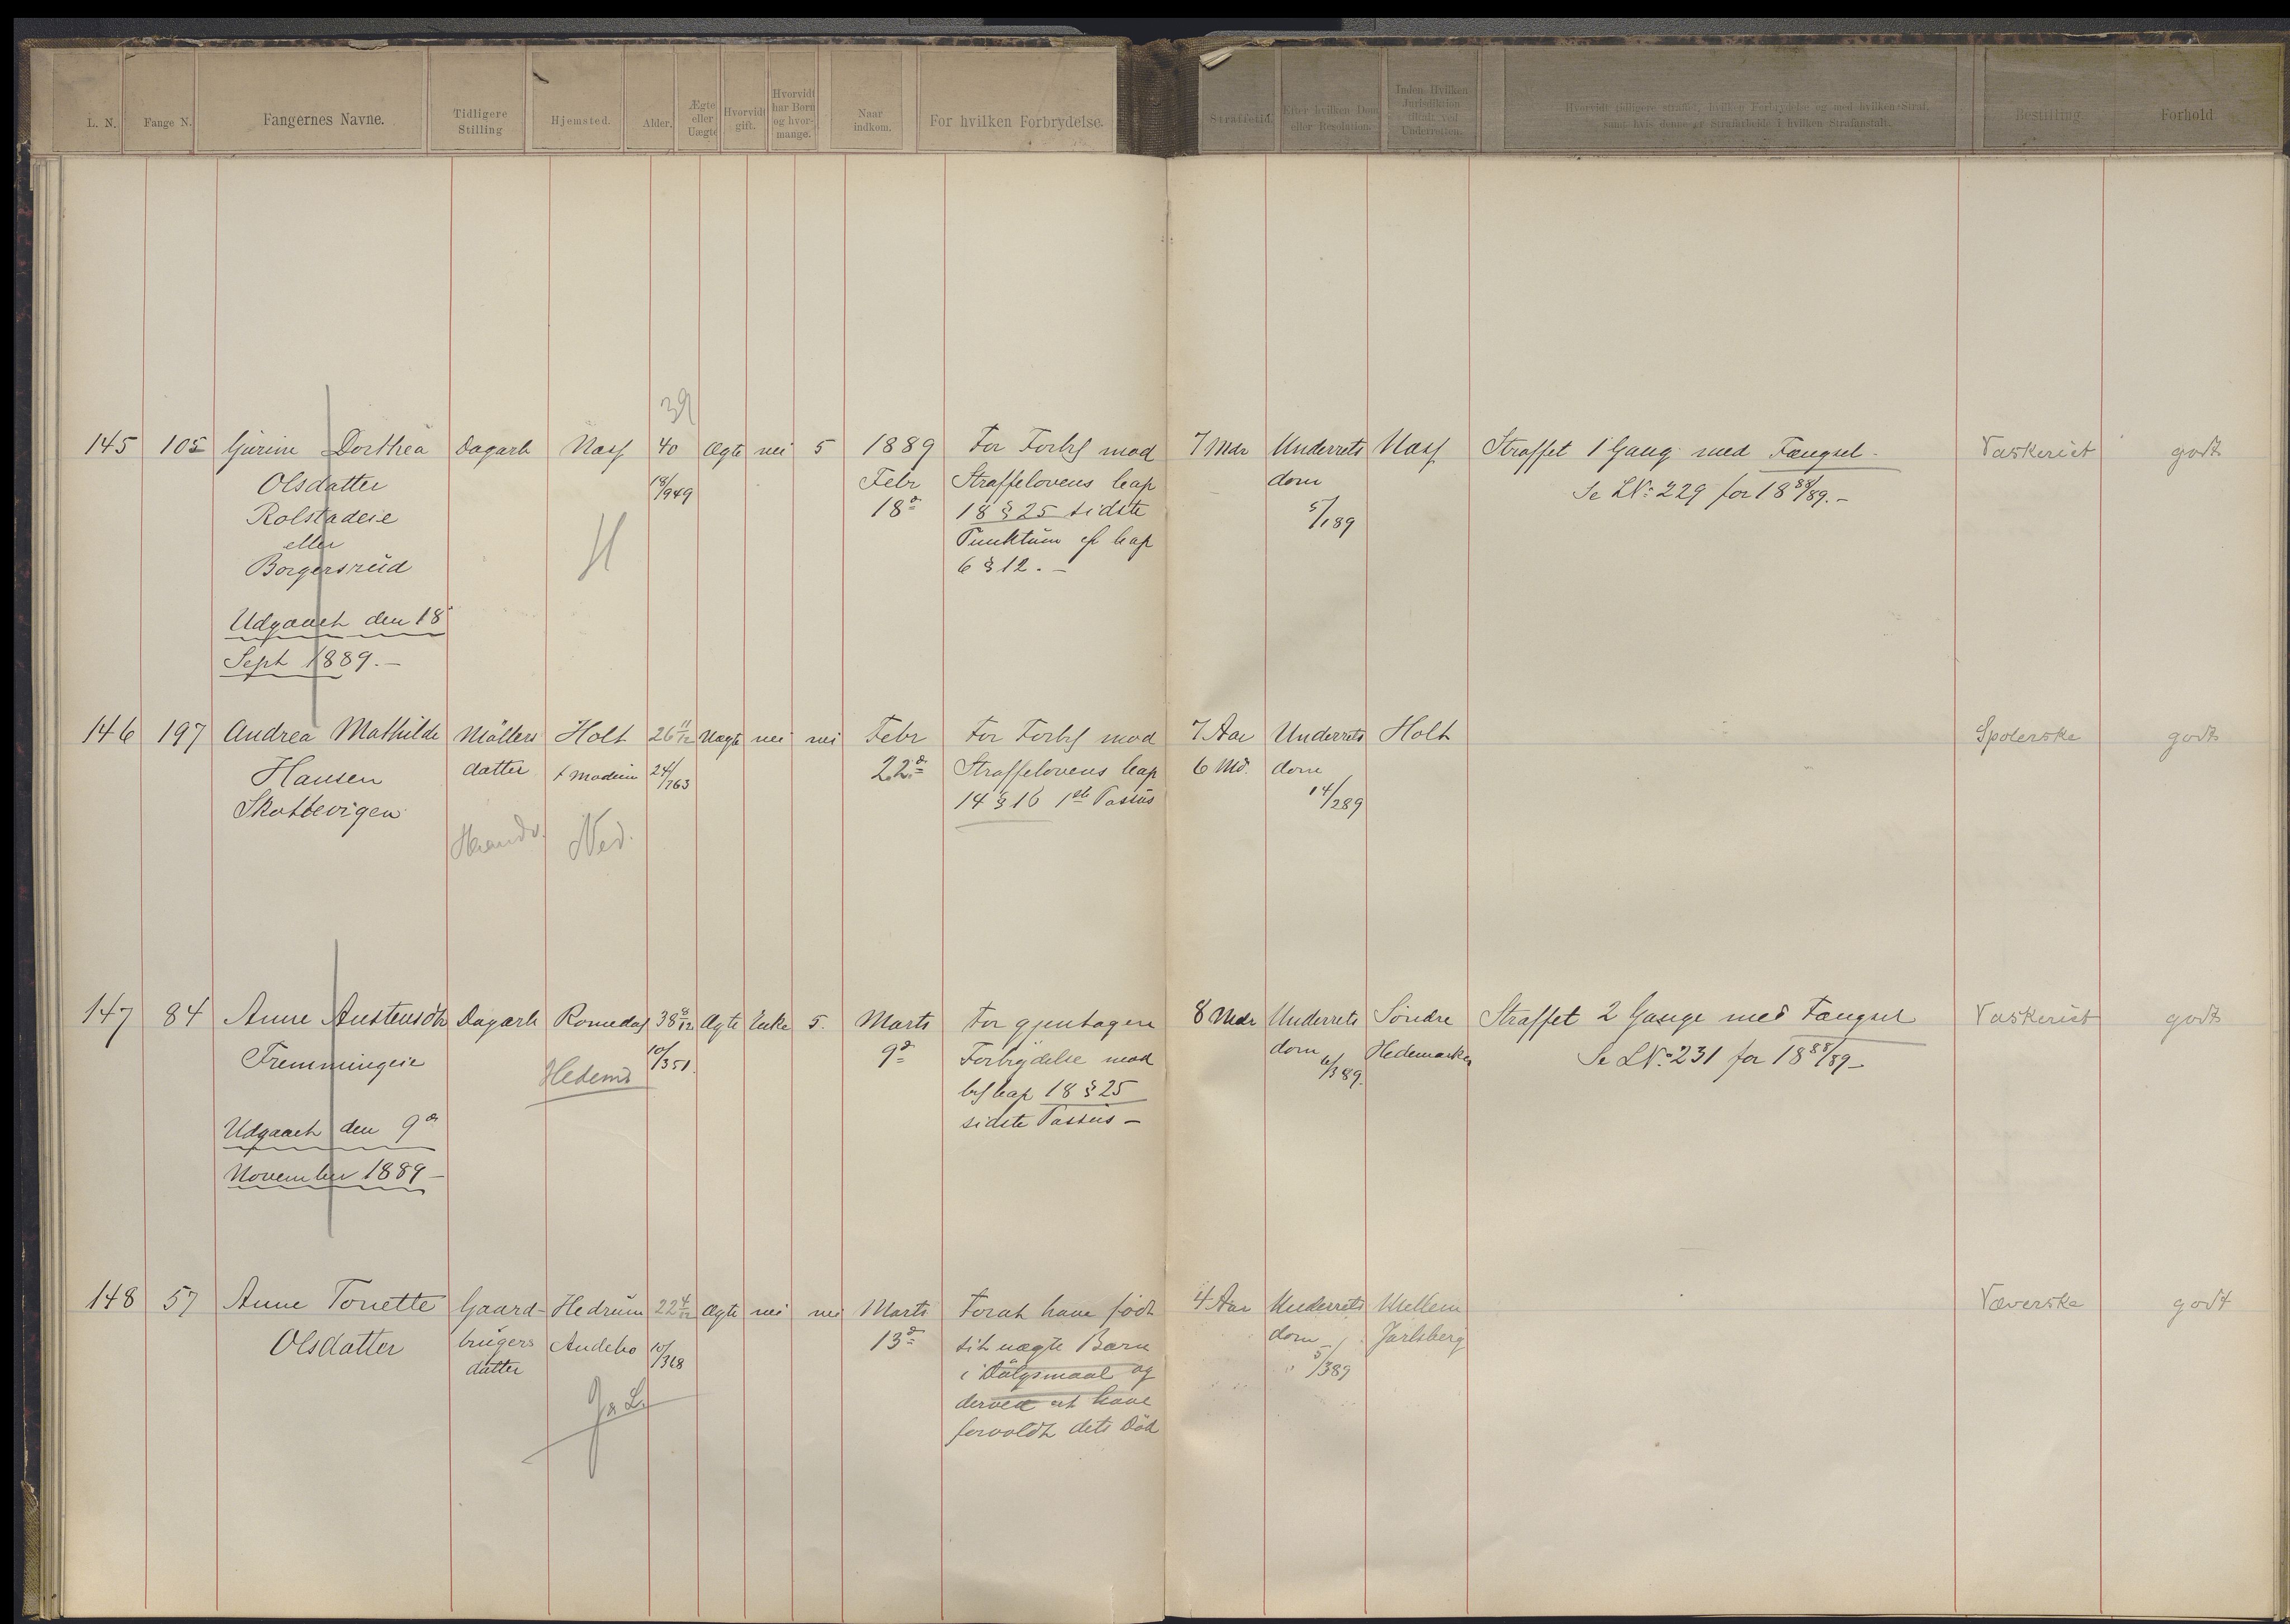 L. N. Fange N. Fangernes Navne. Tidligere Stilling Hjemsted. Alder. Ægte eller Uægte Hvorvidt gift. Hvorvidt har Børn og hvor-mange. Naar indkom. For hvilken Forbrydelse. Straffetid. Efter hvilken Dom eller Resolution. Inden Hvilken Jurisdiktion tiltalt ved Underretten. Hvorvidt tidligere straffet, hvilken Forbrydelse og med hvilken Straf, samt hvis denne er Strafarbeide i hvilken Strafanstalt. Bestilling Forhold
39
145 105 Gurine Dorthea Dagarb Næs 40 Ægte nei 5 1889 For Forbr mod 7 Mdr Underrets Næs Straffet 1 Gang med Fængsel - Vaskeriet godt
Olsdatter 18/949 Febr Straffelovens Cap dom Se LN: 229 for 18 88/89. -
Rolstadeie 18d 18 § 25 sidste 5/189
eller H Punktum cf Cap
Borgersrud 6 § 12. -
Udgaaet den 18
Sept 1889. -
146 197 Andrea Mathilde Møllers Holt 26 11/12 Uægte nei nei Febr For Forbr mod 7 Aar Underrets Holt Spolerske godt
Hansen datter 24/363 22d Straffelovens Cap 6 Md. dom
Skottevigen 14 § 16 1ste Passus 14/289
Ned.
147 84 Anne Austensdtr Dagarb Romedal 38 Ægte Enke 5. Marts For gjentagen 8 Mdr Underrets Søndre Straffet 2 Gange med Fængsel Vaskeriet godt
Fremmingeie Hedem 10/351. 9d Forbrydelse mod dom 6/389. Hedemarken Se LN: 231 for 18 88/89 -
Cap 18 § 25
Udgaaet den 9d sidste Passus -
November 1889 -
148 57 Anne Tonette Gaard- Hedrum 22 4/12 Ægte nei nei Marts For at have født 4 Aar Underrets Mellem Væverske godt
Olsdatter brugers Andebo 10/368 13d sit uægte Barn dom Jarlsberg
datter i Dølgsmaal og 5/389
J & L. derved at have
forvoldt dets Død